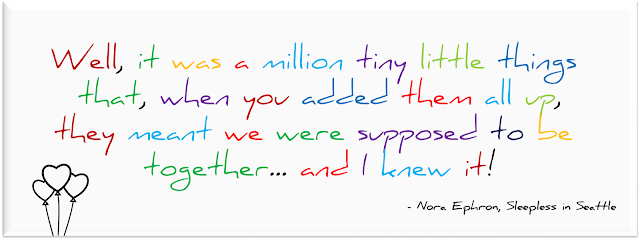 Well, it was a million tiny little things
that, when you added them all up,
they meant we were supposed to be
together... and I knew it!
- Nora Ephron, Sleepless in Seattle